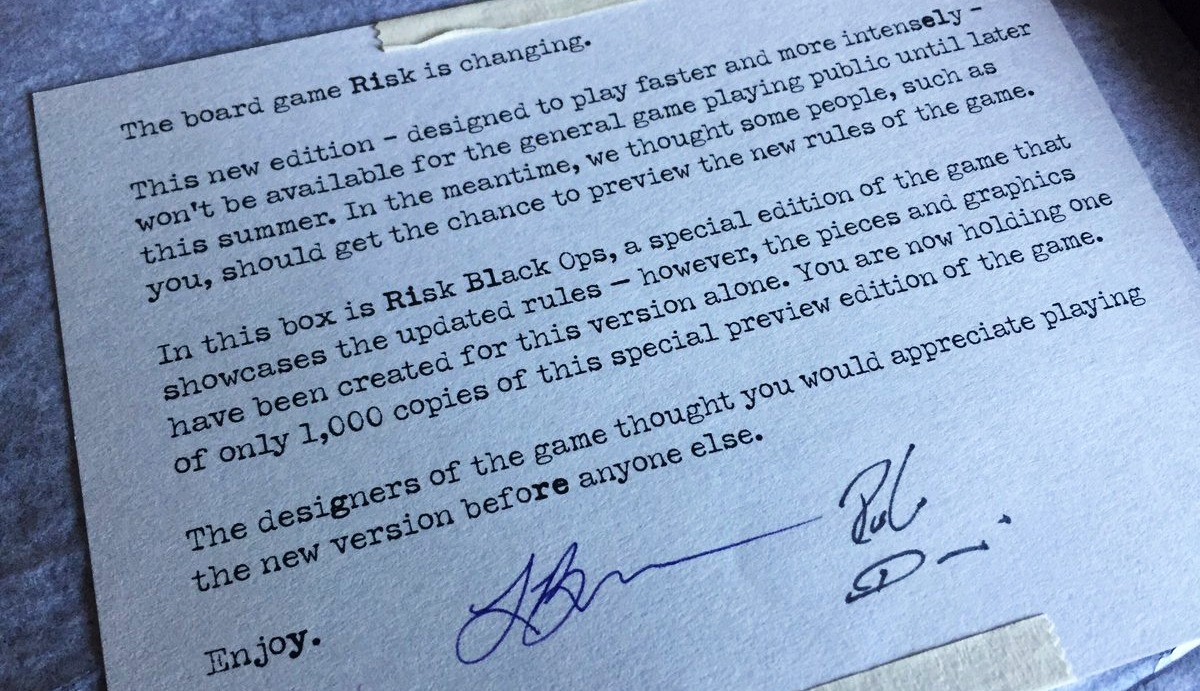 The board game Risk is changing.
This new edition – designed to play faster and more intensely –
won't be available for the general game playing public until later
this summer. In the meantime, we thought some people, such as
you, should get the chance to preview the new rules of the game.
In this box is Risk Black Ops, a special edition of the game that
showcases the updated rules – however, the pieces and graphics
have been created for this version alone. You are now holding one
of only 1,000 copies of this special preview edition of the game.
The designers of the game thought you would appreciate playing
the new version before anyone else.
Enjoy.